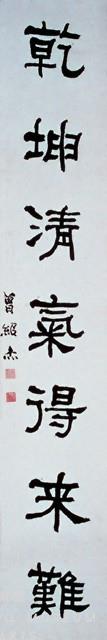 乾坤清氣得来難
曾紹杰